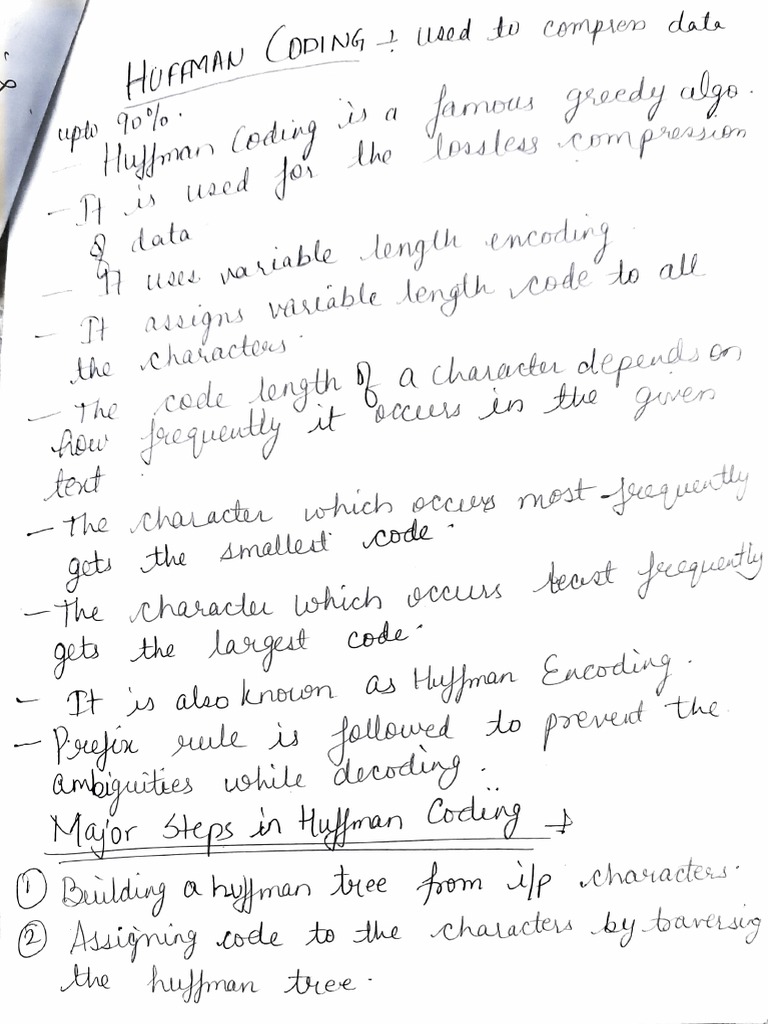 HUFFMAN CODING :- used to compress data
upto 90%.
- Huffman Coding is a famous greedy algo.
- It is used for the lossless compression
of data
- It uses variable length encoding
- It assigns variable length code to all
the characters.
- The code length of a character depends on
how frequently it occurs in the given
text.
- The character which occurs most frequently
gets the smallest code.
- The character which occurs least frequently
gets the largest code.
- It is also known as Huffman Encoding.
- Prefix rule is followed to prevent the
ambiguities while decoding.
Major Steps in Huffman Coding :-
① Building a huffman tree from i/p characters.
② Assigning code to the characters by traversing
the huffman tree.